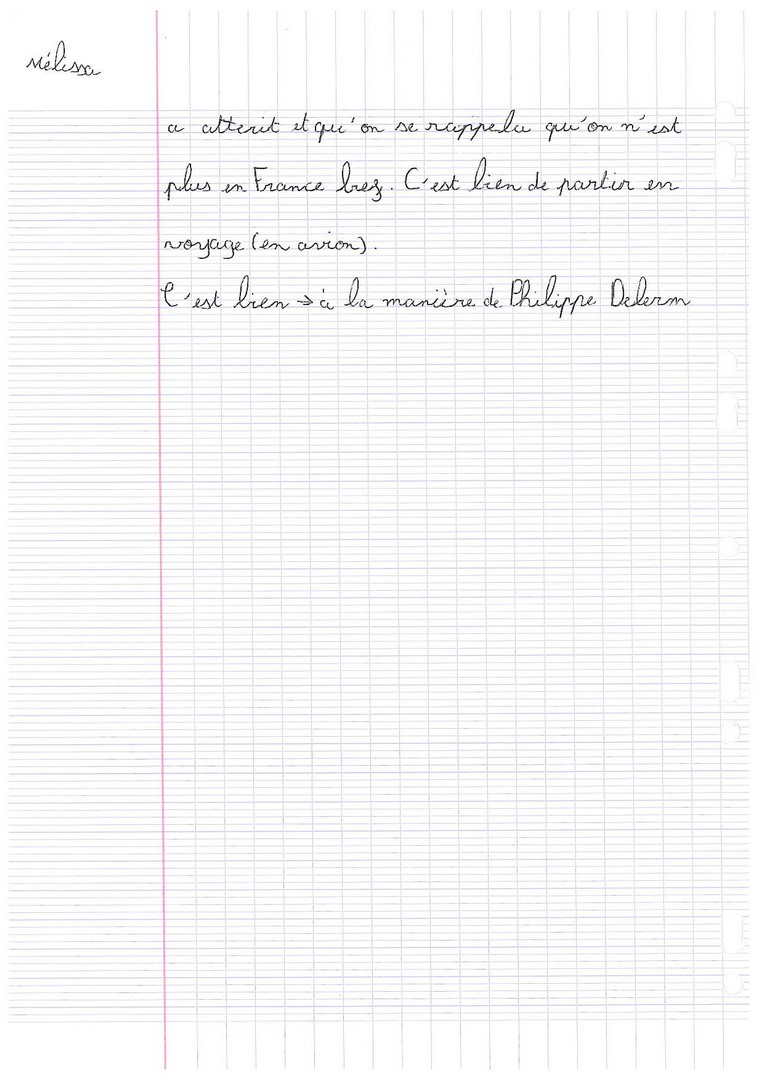 Mélissa
a atterit et qu'on se rappela qu'on n'est
plus en France bref. C'est bien de partir en
voyage (en avion).
C'est bien → à la manière de Philippe Delerm